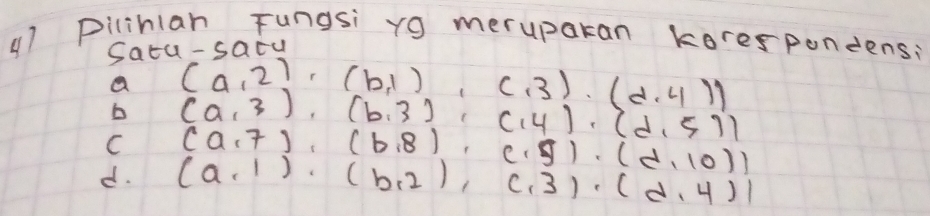 4) Pilihlah Fungsi yg merupakan korespondensi
satu-satu
a (a,2), (b,1), c,3), (d,4)}
b (a,3), (b,3), c,4), (d,5)}
c (a,7), (b,8), c,9), (d,10)}
d. (a,1), (b,2), c,3), (d,4)}